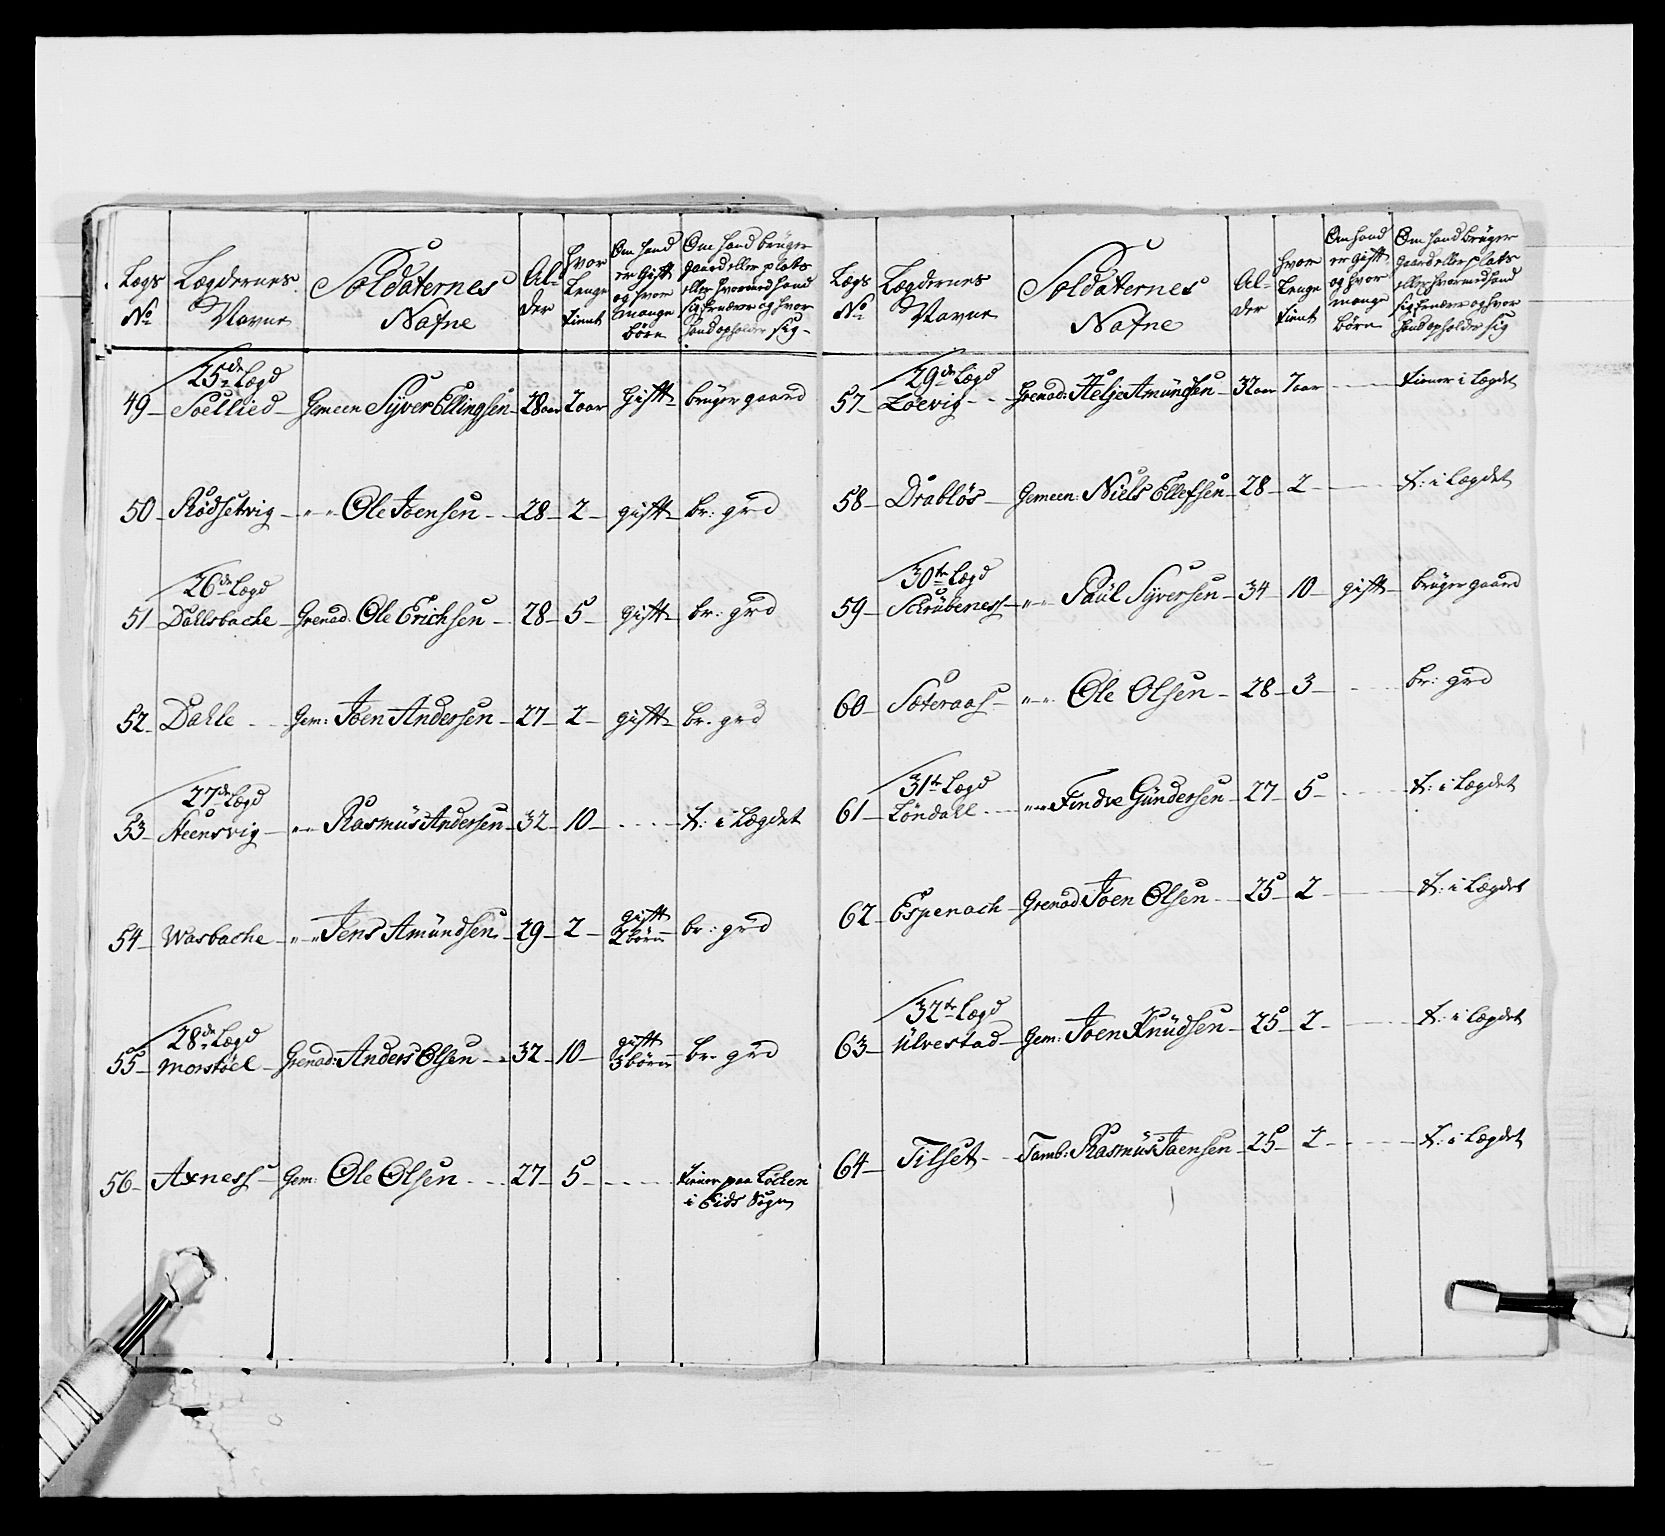 Legs No | Lægdernes Navne | Soldaternes Nafne | Alder | hvor Lenge tient | Om hand er Gift og hvor mange børn | Om hand brüger gaard eller plats eller hvormed hand sig ernærer og hvor hand opholder sig
25de Lægd
49 Soellied Gemeen Syver Ellingsen 28 aar 2 aar Gift brüger gaard
50 Rødsetvig " " Ole Joensen 28 2 gift br: grd
26de Lægd
51 Dahlsbache Grenad: Ole Erichsen 28 5 gift br: grd
52 Dahle Gem: Joen Andersen 27 2 gift br. grd
27de Lægd
53 Steensvig " Rasmus Andersen 32 10 t: i Lægdet
54 Wasbache " " Jens Amündsen 29 2 gift 2 børn br: grd
28de Lægd
55 Morstøel Grenad: Anders Olsen 32 10 gift 3 børn br. grd
56 Axness Gem: Ole Olsen 27 5 tiener paa Løchen
i Eids Sogn
Legs No | Lægdernes Navne | Soldaternes Nafne | Alder | hvor Lenge tient | Om hand er gift og hvor mange børn | Om hand brüger gaard eller plats eller hvormed hand sig ernærer og hvor hand opholder sig
29de Lægd
57 Løevig Grenad: Helje Amundsen 32 aar 7 aar tiener i Lægdet
58 Drabløs Gemeen: Niels Ellefsen 28 2 t: i Lægdet
30te Lægd
59 Schrübeness " " Paül Syversen 34 10 gift brüger gaard
60 Sæteraas " " Ole Olsen 28 3 br: grd
31te Lægd
61 Løndahl " " Findve Gündersen 27 5 t: i Lægdet
62 Espenach Grenad Joen Olsen 25 2 t: i Lægdet
32te Lægd
63 Ulvestad Gem: Joen Knüdsen 25 2 t: i Lægdet
64 Tilset Tamb: Rasmus Jaensen 25 2 t: i Lægdet